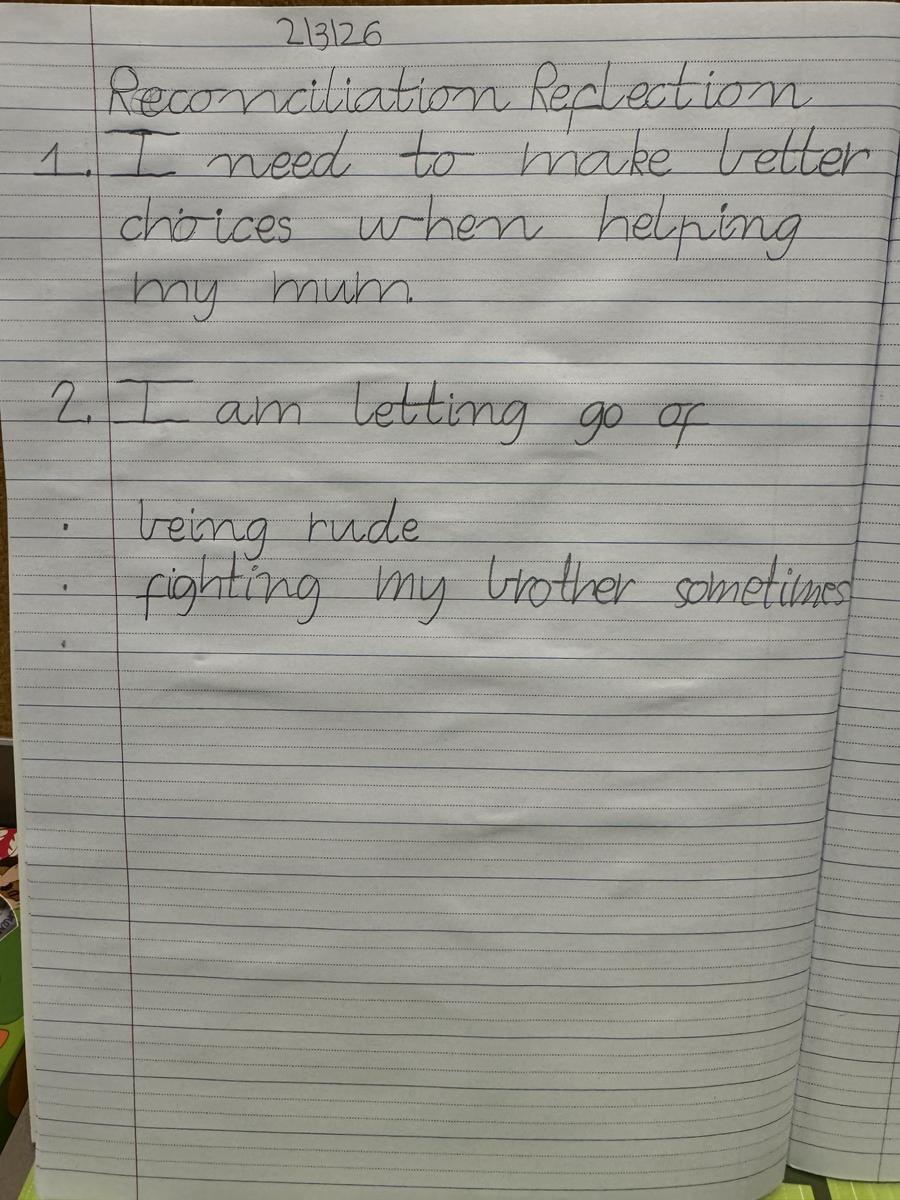 2/3/26
Reconciliation Reflection
1. I need to make better
choices when helping
my mum.
2. I am letting go of
• being rude
• fighting my brother sometimes
•